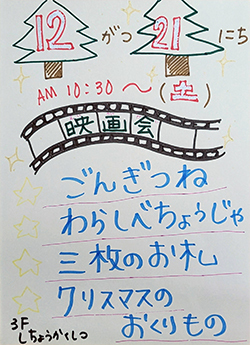 12がつ21にち
AM 10:30〜(土)
映画会
ごんぎつね
わらしべちょうじゃ
三枚のお札
クリスマスの
おくりもの
3F
しちょうかくしつ